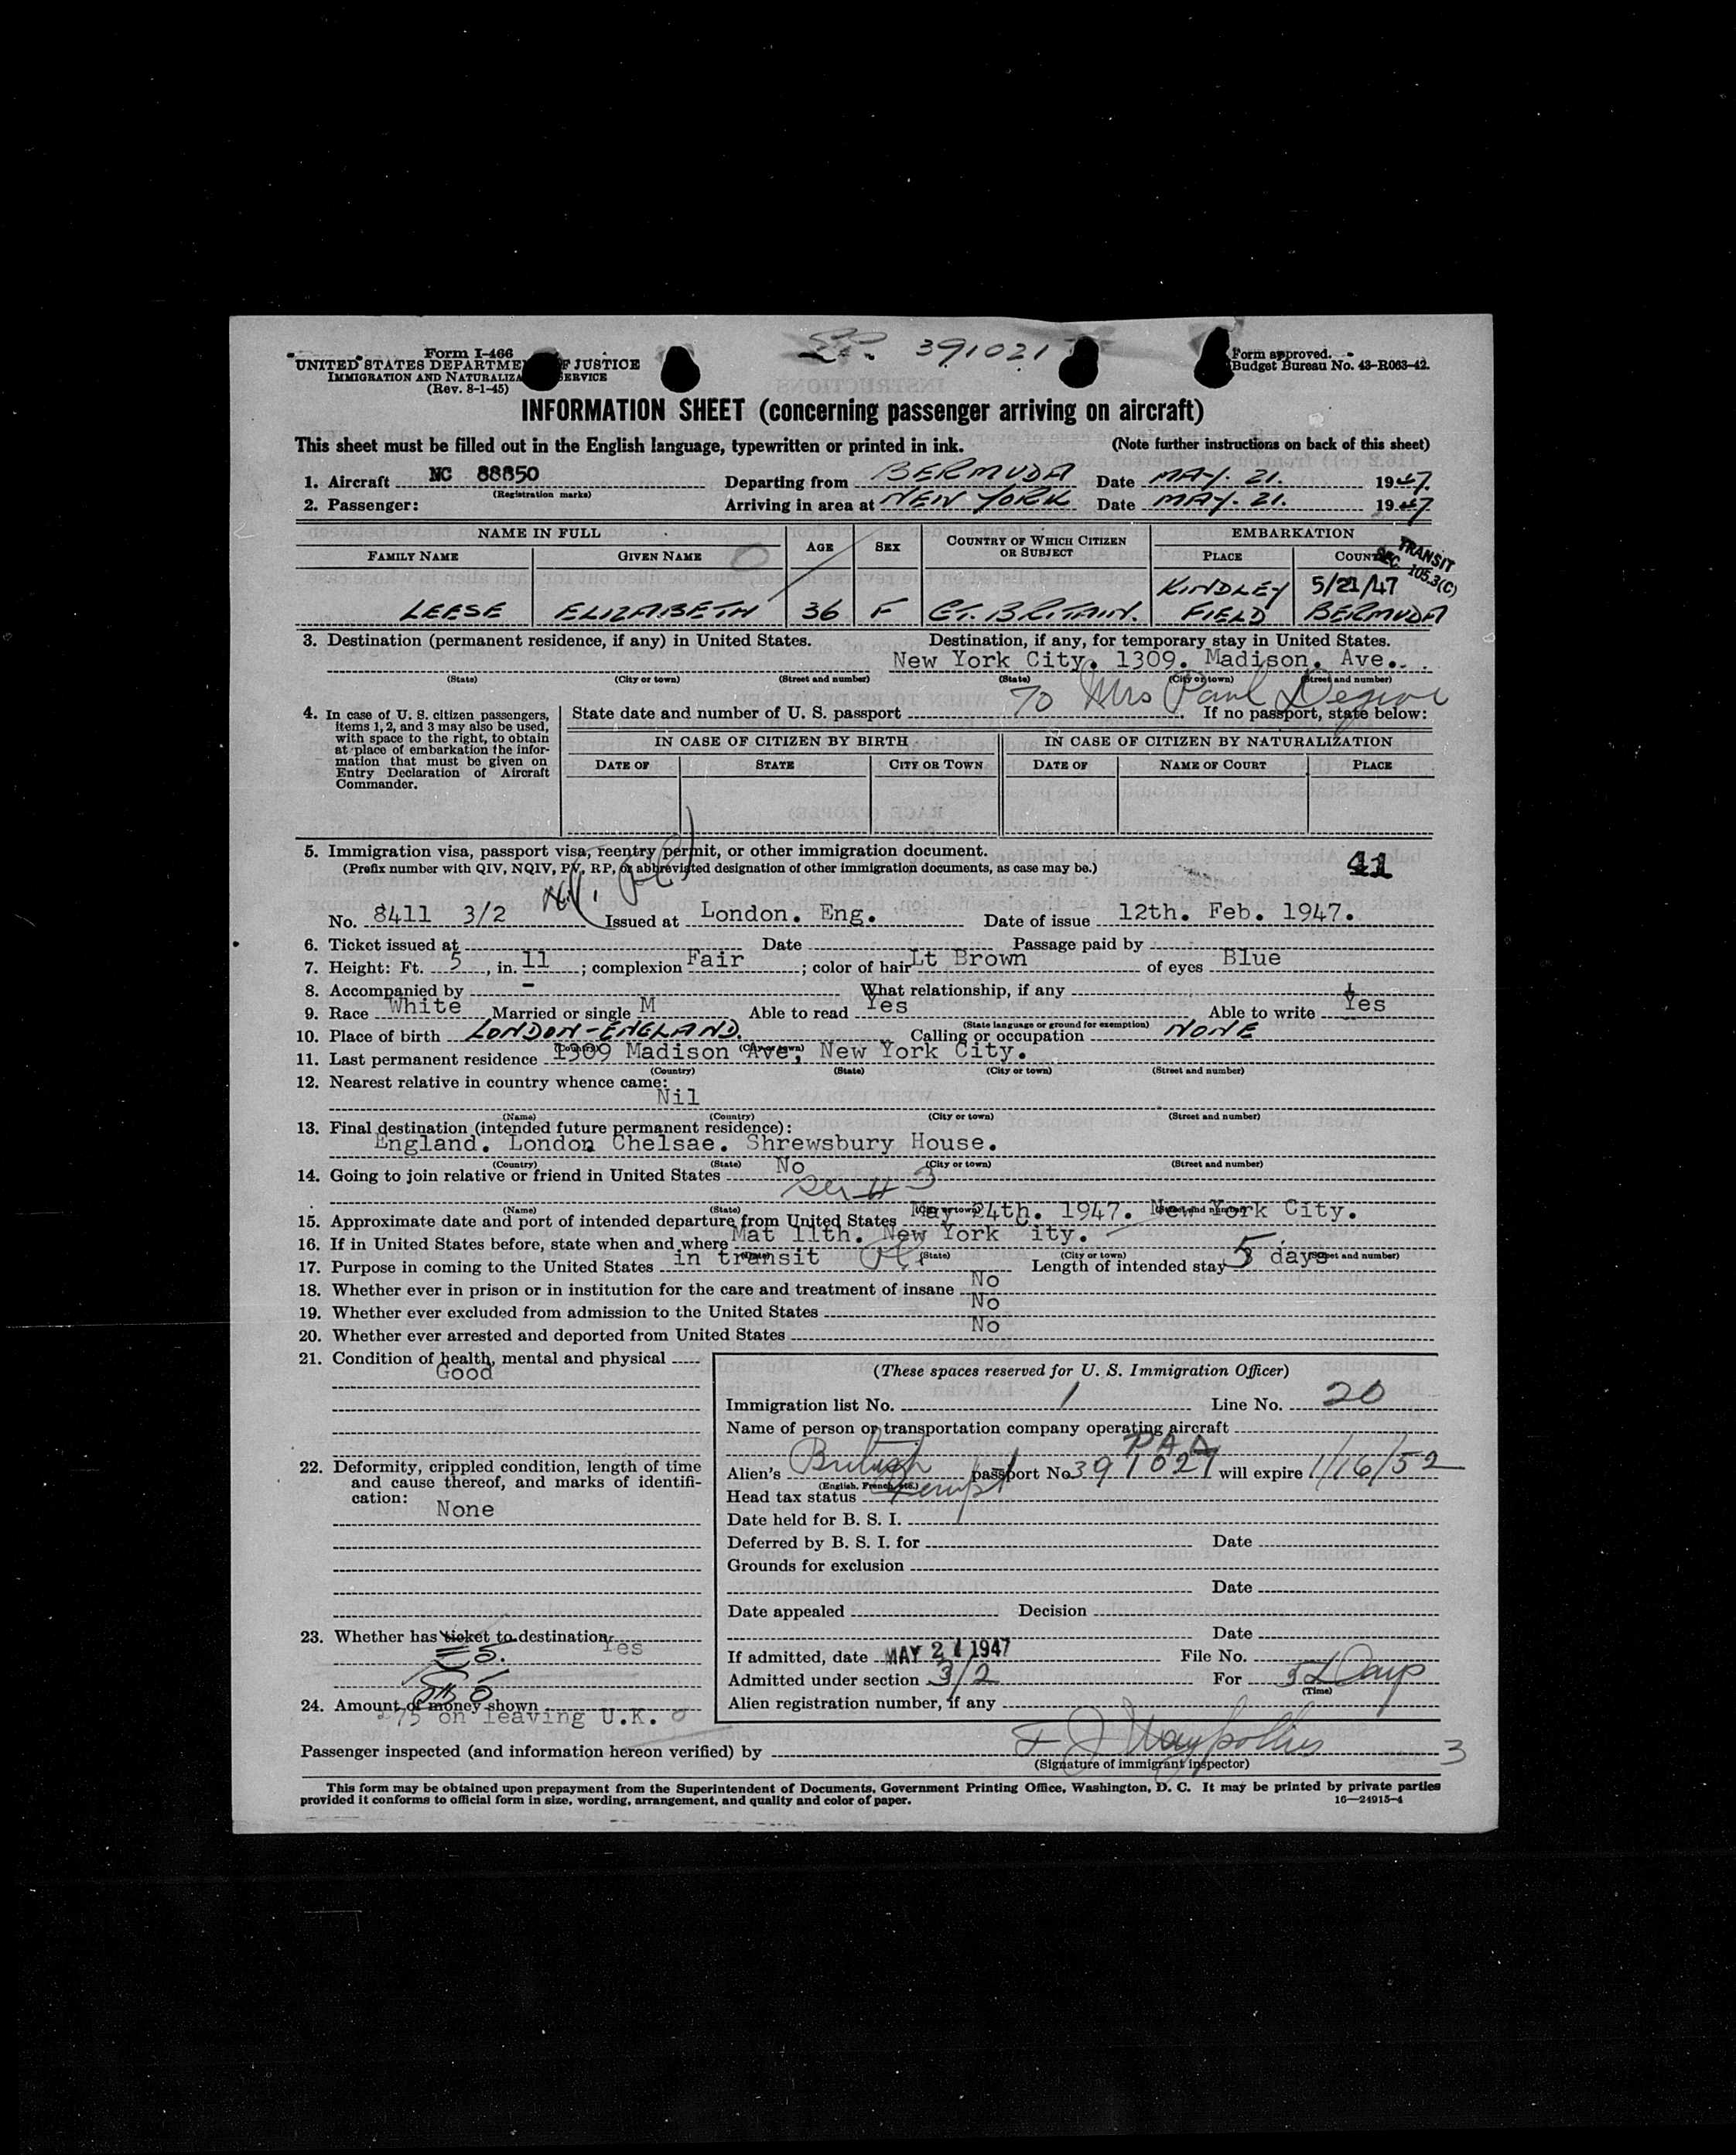 391021
Form I-466
UNITED STATES DEPARTME F JUSTICE
IMMIGRATION AND NATURALIZA SERVICE
(Rev. 8-1-45)
Form approved.
Budget Bureau No. 43-R063-42.
INFORMATION SHEET (concerning passenger arriving on aircraft)
This sheet must be filled out in the English language, typewritten or printed in ink. (Note further instructions on back of this sheet)
1. Aircraft NC 88850 Departing from BERMUDA Date MAY. 21. 1947.
(Registration marks)
2. Passenger: Arriving in area at NEW YORK Date MAY. 21. 1947
NAME IN FULL AGE SEX COUNTRY OF WHICH CITIZEN OR SUBJECT EMBARKATION
FAMILY NAME GIVEN NAME PLACE COUNT
TRANSIT
SEC. 105.3(C)
LEESE ELIZABETH 36 F GT. BRITAIN. KINDLEY FIELD 5/21/47 BERMUDA
3. Destination (permanent residence, if any) in United States. Destination, if any, for temporary stay in United States.
New York City. 1309. Madison. Ave.
(State) (City or town) (Street and number) (State) (City or town) (Street and number)
To Mrs Paul
4. In case of U. S. citizen passengers, items 1, 2, and 3 may also be used, with space to the right, to obtain at place of embarkation the information that must be given on Entry Declaration of Aircraft Commander.
State date and number of U. S. passport If no passport, state below:
IN CASE OF CITIZEN BY BIRTH IN CASE OF CITIZEN BY NATURALIZATION
DATE OF STATE CITY OR TOWN DATE OF NAME OF COURT PLACE
5. Immigration visa, passport visa, reentry permit, or other immigration document.
(Prefix number with QIV, NQIV, PV, RP, or abbreviated designation of other immigration documents, as case may be.)
41
No. 8411 3/2 Issued at London. Eng. Date of issue 12th. Feb. 1947.
6. Ticket issued at Date Passage paid by
7. Height: Ft. 5, in. 11; complexion Fair; color of hair Lt Brown of eyes Blue
8. Accompanied by - What relationship, if any
9. Race White Married or single M Able to read Yes Able to write Yes
(State language or ground for exemption)
10. Place of birth LONDON-ENGLAND. Calling or occupation NONE
(Country) (City or town)
11. Last permanent residence 1309 Madison Ave, New York City.
(Country) (State) (City or town) (Street and number)
12. Nearest relative in country whence came:
Nil
(Name) (Country) (City or town) (Street and number)
13. Final destination (intended future permanent residence):
England. London Chelsae. Shrewsbury House.
(Country) (State) (City or town) (Street and number)
14. Going to join relative or friend in United States No
See # 3
(Name) (State) (City or town) (Street and number)
15. Approximate date and port of intended departure from United States May 24th. 1947. New York City.
16. If in United States before, state when and where Mat 11th. New York ity.
(Date) (State) (City or town) (Street and number)
17. Purpose in coming to the United States in transit Length of intended stay 5 days
18. Whether ever in prison or in institution for the care and treatment of insane No
19. Whether ever excluded from admission to the United States No
20. Whether ever arrested and deported from United States No
21. Condition of health, mental and physical
Good
22. Deformity, crippled condition, length of time and cause thereof, and marks of identification:
None
23. Whether has ticket to destination Yes
24. Amount of money shown
£75 on leaving U.K.
(These spaces reserved for U. S. Immigration Officer)
Immigration list No. 1 Line No. 20
Name of person or transportation company operating aircraft
P A A
Alien's British passport No 391021 will expire 1/16/52
(English, French, etc.)
Head tax status
Date held for B. S. I.
Deferred by B. S. I. for Date
Grounds for exclusion
Date
Date appealed Decision
Date
If admitted, date MAY 21 1947 File No.
Admitted under section 3/2 For Days
(Time)
Alien registration number, if any
Passenger inspected (and information hereon verified) by
(Signature of immigrant inspector)
3
This form may be obtained upon prepayment from the Superintendent of Documents, Government Printing Office, Washington, D. C. It may be printed by private parties
provided it conforms to official form in size, wording, arrangement, and quality and color of paper. 16—24915-4